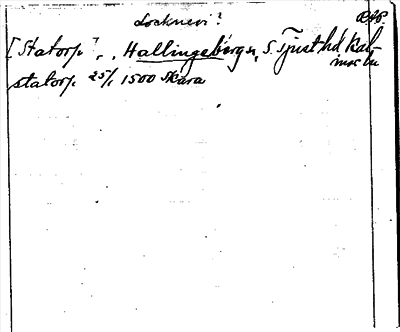 Locknevi?
[Statorp?, Hallingebergs sn, S. Tjust hd, Kal-
mar län
statorp 25/1 1500 Skara